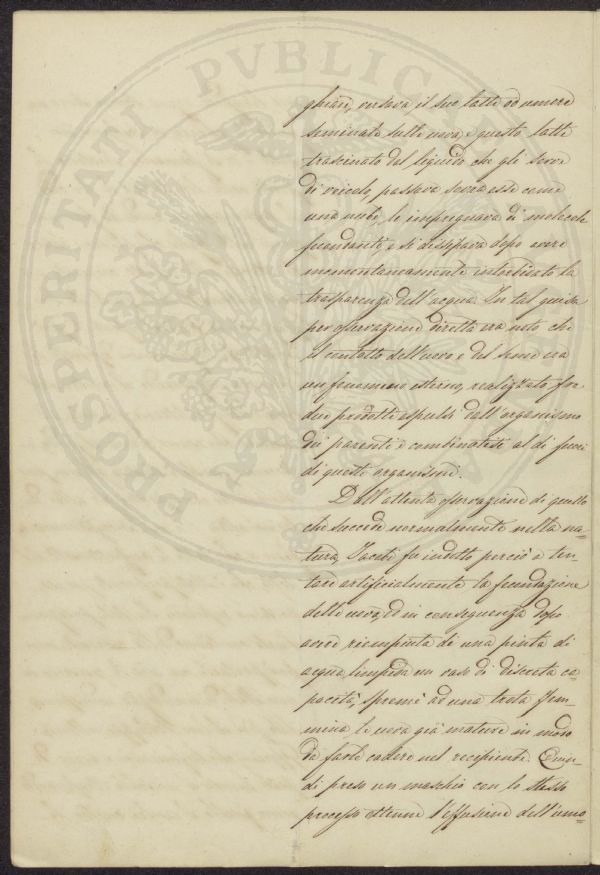 PROSPERITATI PVBLICAE
ghiare, versava il suo latte od umore
seminale sulle uova, e questo latte
trascinato dal liquido che gli serve
di veicolo, passava sovra esse come
una nube, le impregnava di molecole
fecondanti, e si dissipava dopo avere
momentaneamente intorbidato la
trasparenza dell'acqua. In tal guisa
per osservazione diretta era noto che
il contatto dell'uovo e del seme era
un fenomeno esterno, realizzato fra
due prodotti espulsi dall'organismo
dei parenti e combinatisi al di fuori
di questi organismi.
Dall'attenta osservazione di quello
che succede normalmente nella na=
tura, Jacobi fu indotto perciò a ten=
tare artificialmente la fecondazione
delle uova, ed in conseguenza dopo
avere riempiuta di una pinta di
acqua limpida un vaso di discreta ca=
pacità, spremé ad una trota fem=
mina le uova già mature in modo
da farle cadere nel recipiente. Quin=
di preso un maschio con lo stesso
processo ottenne l'effusione dell'umo=